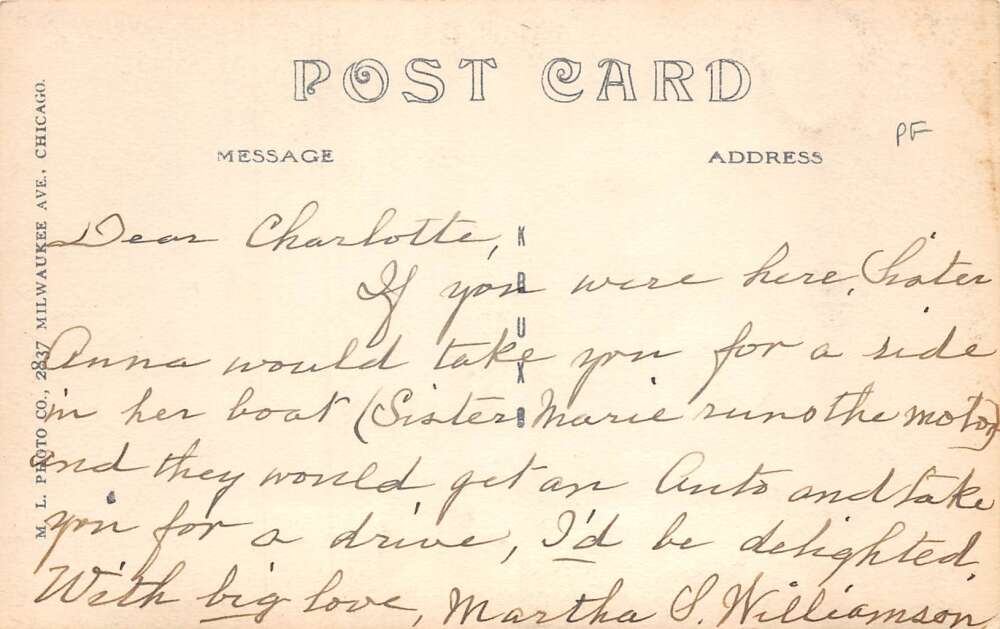 POST CARD
PF
MESSAGE
ADDRESS
M. L. PHOTO CO., 2837 MILWAUKEE AVE., CHICAGO.
KRUXO
Dear Charlotte,
If you were here, Sister
Anna would take you for a ride
in her boat (Sister Marie runs the motor)
and they would get an Auto and take
you for a drive, I'd be delighted.
With big love, Martha S. Williamson